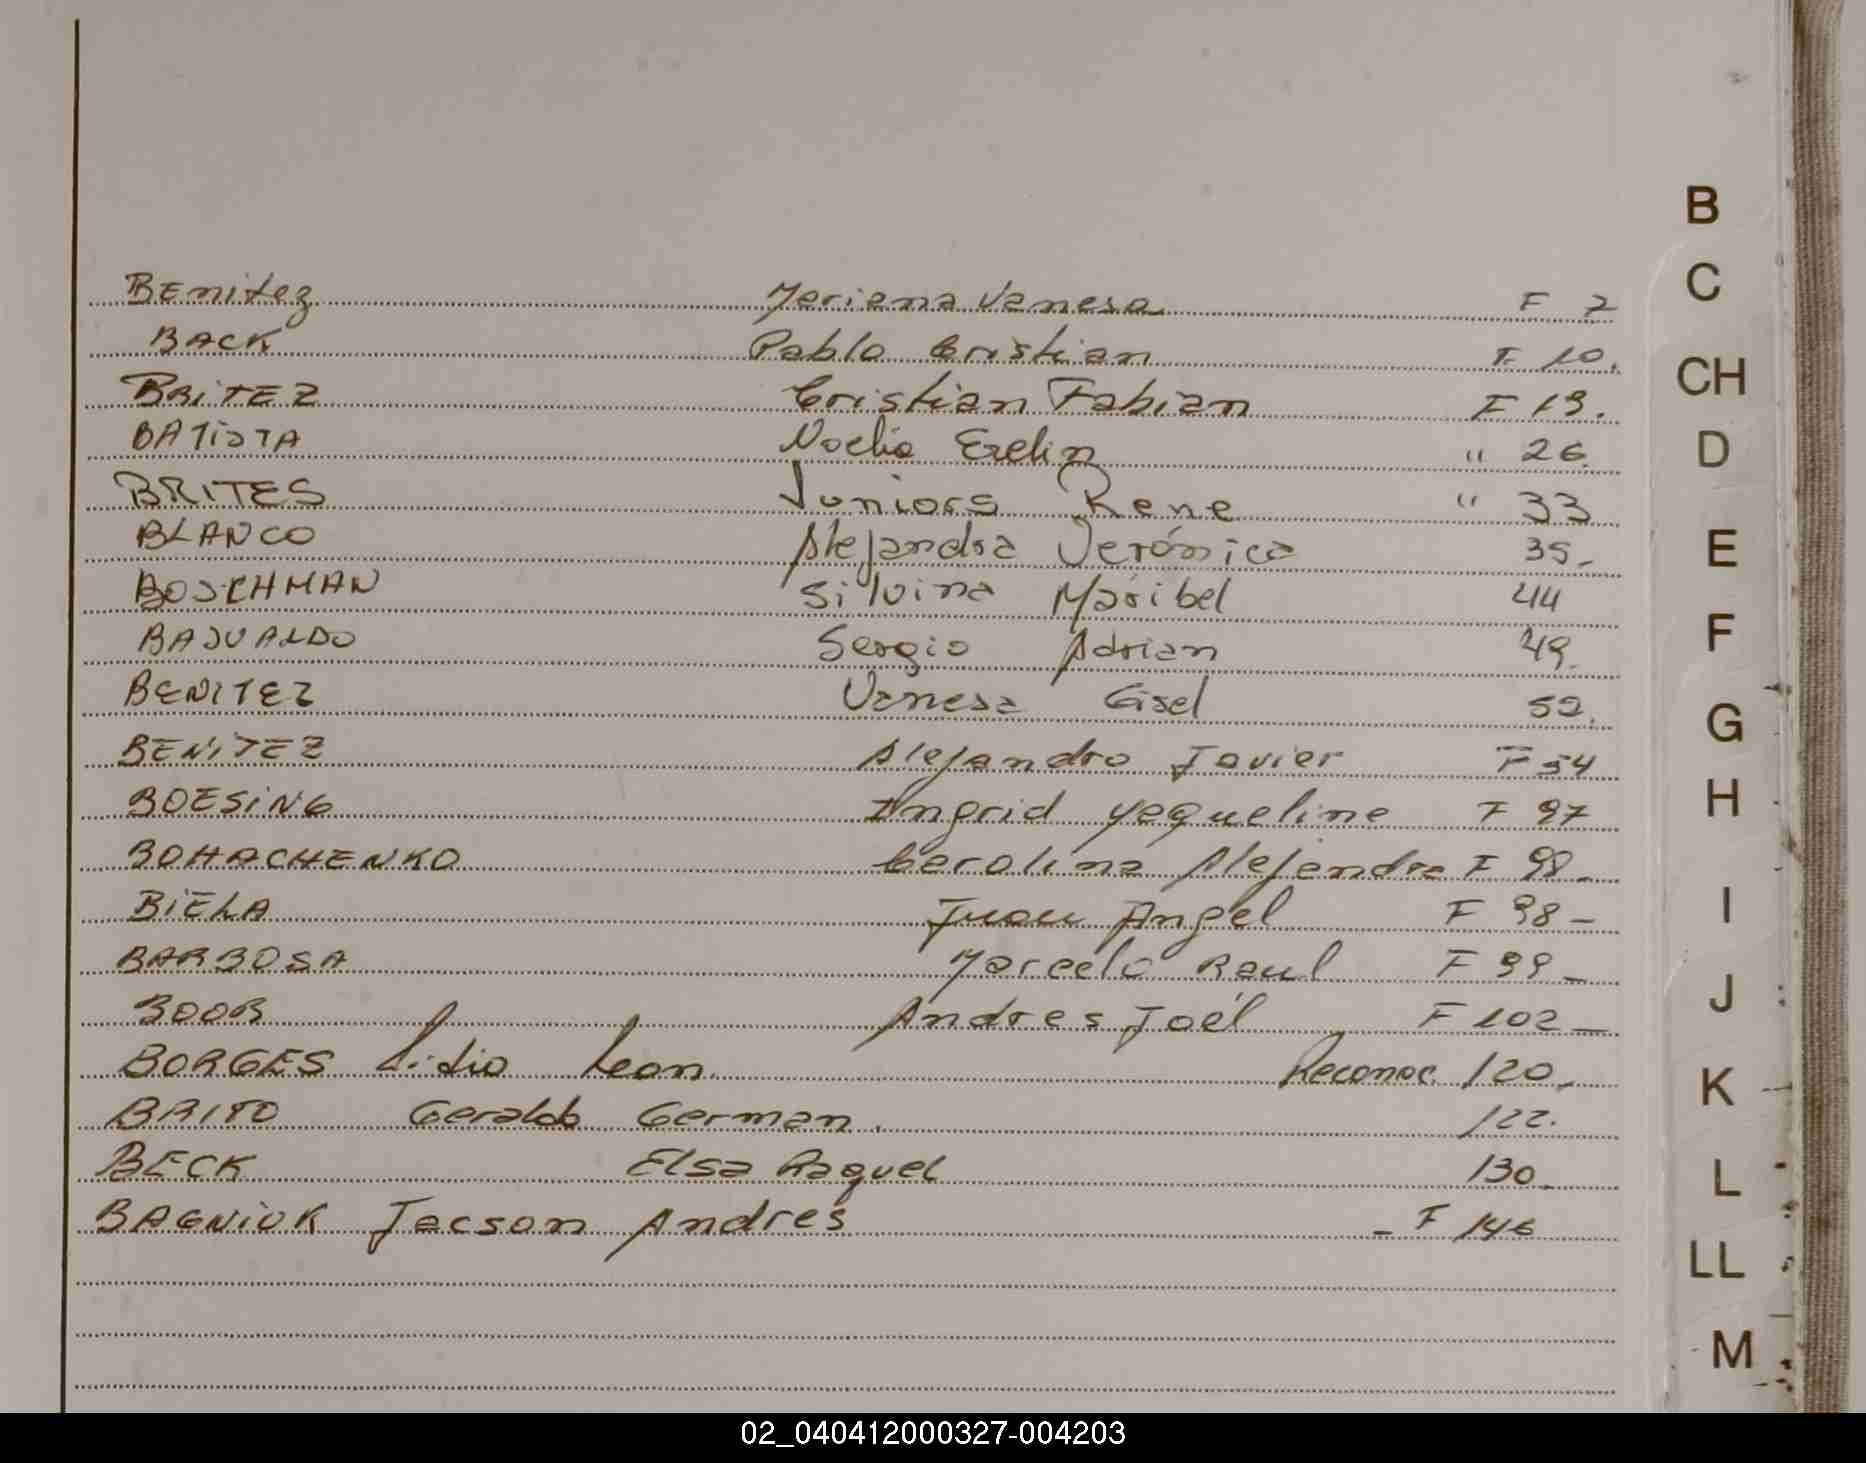 BEnitez Mariana Vanesa F 7
BACK Pablo Cristian F 10.
BRiTEZ Cristian Fabian F 19.
BATISTA Noelia Evelin " 26.
BRITES Juniors Rene " 33
BLANCO Alejandra Verónica 35.
BOSCHMAN Silvina Maribel 44
BASUALDO Sergio Adrian 49.
BENITEZ Vanesa Gisel 52.
BENITEZ Alejandro Javier F 54
BOESiNG Ingrid Yaqueline F 97
BOHACHENKO Carolina Alejandra F 98-
BiELA Juan Angel F 98-
BARBOSA Marcelo Raul F 99-
BOOR Andres Joél F 102-
BORGES Lidio Leon. Reconoc. 120.
BRITO Geraldo German. 122.
BECK Elsa Raquel 130.
BAGNIUK Jacson Andrés - F 146
B
C
CH
D
E
F
G
H
I
J
K
L
LL
M
02_040412000327-004203